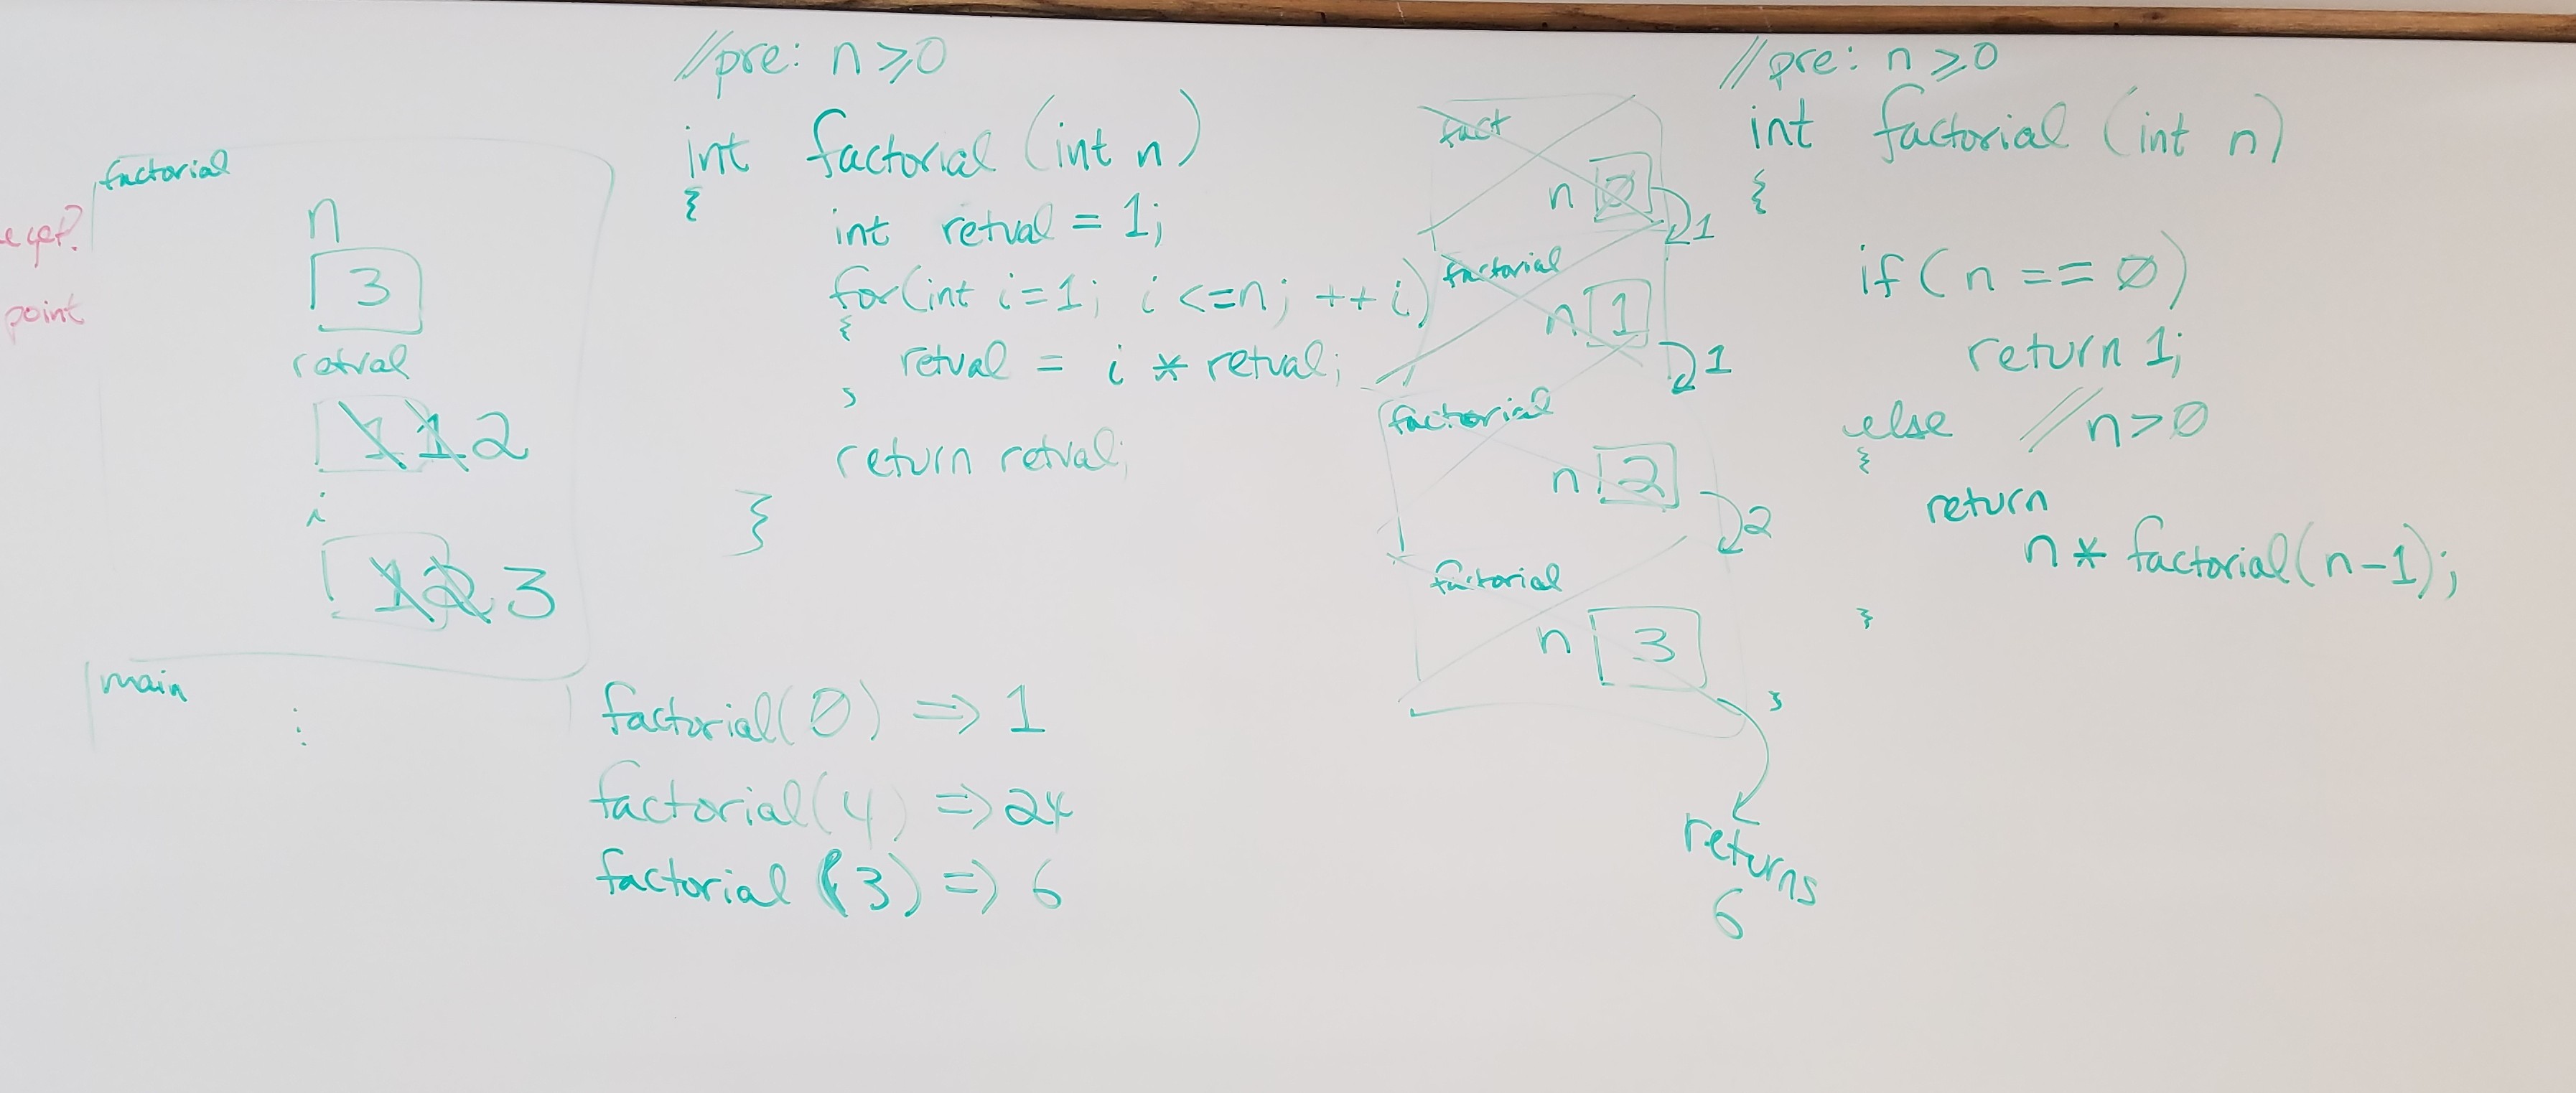 point
factorial
n
3
retval
1 1 2
i
1 2 3
main
⋮
//pre: n ≥ 0
int factorial (int n)
{
int retval = 1;
for(int i=1; i <=n; ++i)
{
retval = i * retval;
}
return retval;
}
factorial(0) => 1
factorial(4) => 24
factorial(3) => 6
fact
n 0
1
factorial
n 1
1
factorial
n 2
2
factorial
n 3
returns
6
//pre: n ≥ 0
int factorial (int n)
{
if(n == 0)
return 1;
else //n>0
{
return
n * factorial(n-1);
}
}